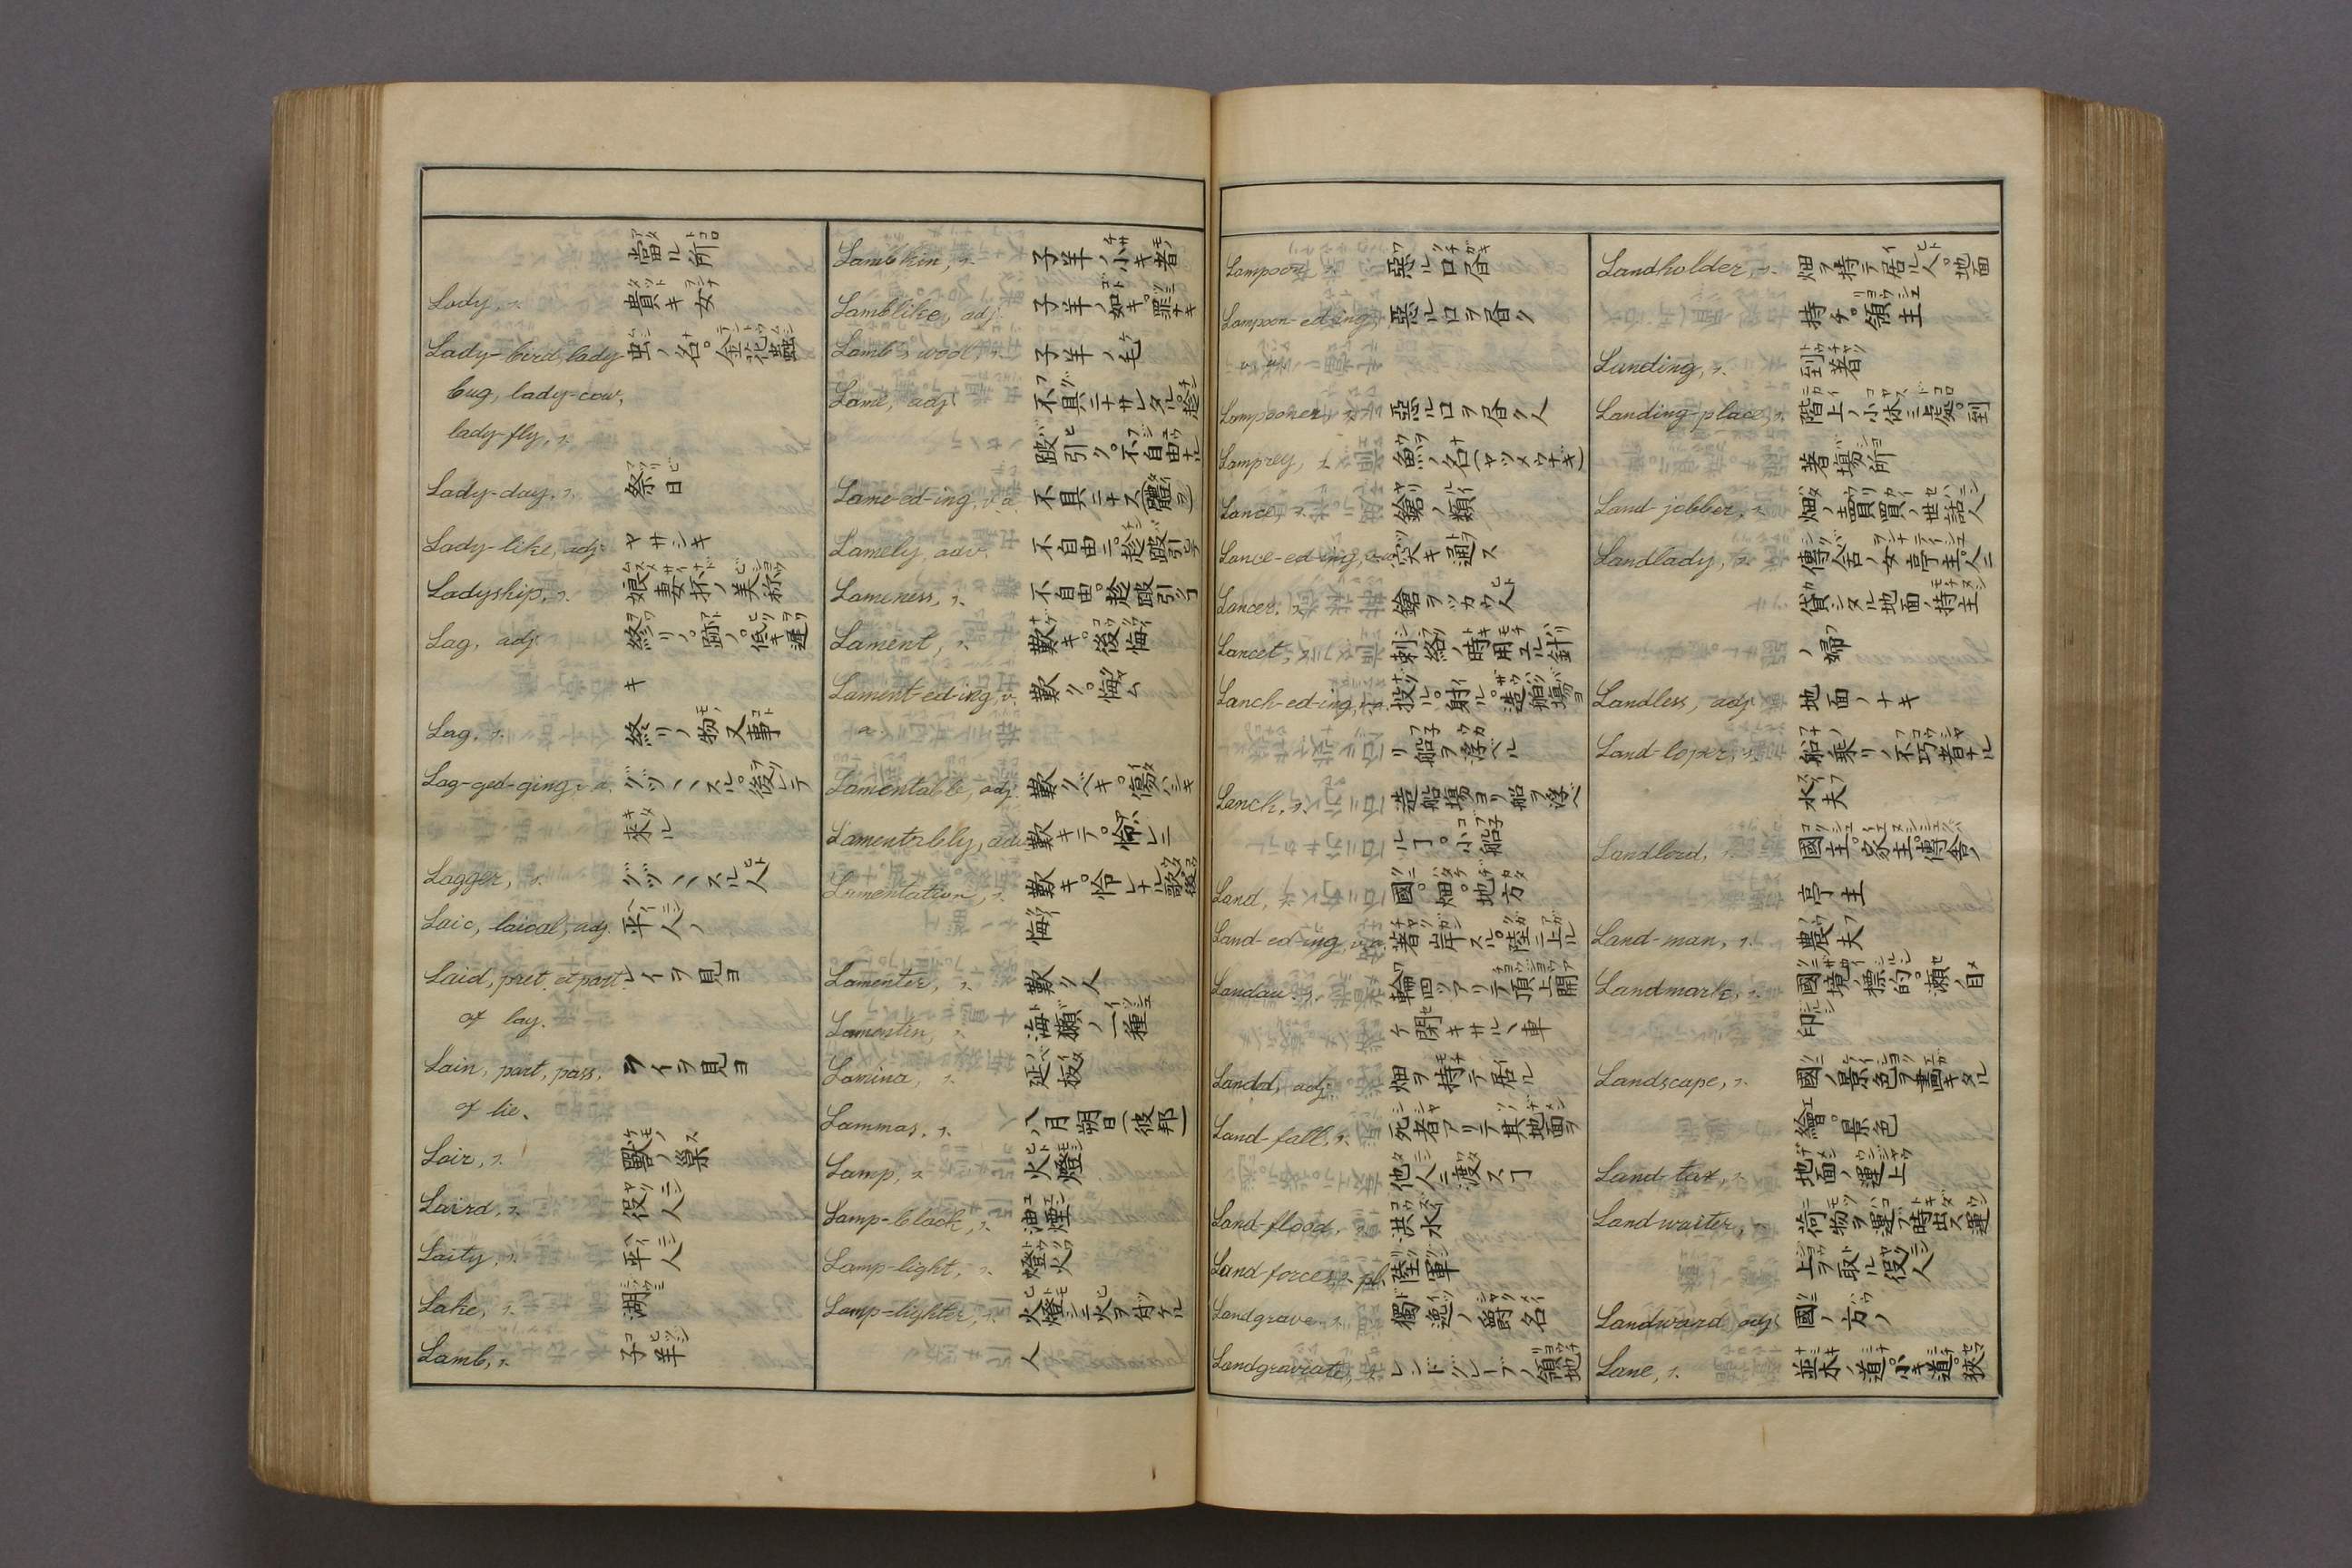 當ル所
Lady, s. 貴キ女
Lady-bird, lady- 虫ノ名。金花蟲
bug, lady-cow,
lady-fly, s.
Lady-day, s. 祭日
Lady-like, adj. ヤサシキ
Ladyship, s. 娘妻抔ノ美称
Lag, adj. 終リノ。跡ノ。低キ遅
キ
Lag, s. 終リノ物又事
Lag-ged-ging, v.n. グヅ〱スル。後レテ
来ル
Lagger, s. グヅ〱スル人
Laic, laical, adj. 平人ノ
Laid, pret. et part. レイヲ見ヨ
of lay.
Lain, part. pass. ライヲ見ヨ
of lie.
Lair, s. 獸ノ巣
Laird, s. 役人
Laity, s. 平人
Lake, s. 湖
Lamb, s. 子羊
Lambkin, s. 子羊ノ小キ者
Lamblike, adj. 子羊ノ如キ。罪ナキ
Lamb's wool, s. 子羊ノ毛
Lame, adj. 不具ニナサレタル。趁
跛引ク。不自由ナル
Lame-ed-ing, v.a. 不具ニナス(體ヲ)
Lamely, adv. 不自由ニ。趁跛引テ
Lameness, s. 不自由。趁跛引ヿ
Lament, s. 歎キ。後悔
Lament-ed-ing, v. 歎ク。悔ム
a.
Lamentable, adj. 歎クベキ。傷シキ
Lamentably, adv. 歎キテ。怜レニ
Lamentation, s. 歎キ。怜レナル歌。後
悔
Lamenter, s. 歎ク人
Lamentin, s. 海獺ノ一種
Lamina, s. 延板
Lammas, s. 八月朔日(彼邦)
Lamp, s. 火燈
Lamp-black, s. 油煙
Lamp-light, s. 燈火
Lamp-lighter, s. 火燈ニ火ヲ付ケル
人
Lampoon, s. 惡ル口書
Lampoon-ed-ing, 惡ル口ヲ書ク
v.a.
Lampooner, s. 惡ル口ヲ書ク人
Lamprey, s. 魚ノ名(ヤツメウナギ)
Lance, s. 鎗ノ類
Lance-ed-ing, v.a. 突キ通ス
Lancer, s. 鎗ヲツカウ人
Lancet, s. 刺絡ノ時用ユル針
Lanch-ed-ing, v.a. 投ル。射ル。造船塲ヨ
リ船ヲ浮ベル
Lanch, s. 造船塲ヨリ船ヲ浮ベ
ルヿ。小船
Land, s. 國。畑。地方
Land-ed-ing, v.a. 著岸スル。陸ニ上ル
Landau, s. 輪四ツアリテ頂上開
ケ閉キサルヽ車
Landed, adj. 畑ヲ持テ居ル
Land-fall, s. 死者アリテ其地面ヲ
他人ニ渡スヿ
Land-flood, s. 洪水
Land-forces, s. pl. 陸軍
Landgrave, s. 獨逸ノ爵名
Landgraviate, s. レンドグレーフノ領地
Landholder, s. 畑ヲ持テ居ル人。地面
持チ。領主
Landing, s. 到著
Landing-place, s. 階上ノ小休ミ處。到
著塲所
Land-jobber, s. 畑ノ賣買ノ世話人
Landlady, s. 傳舎ノ女亭主。人ニ
貸シタル地面ノ持主
ノ婦
Landless, adj. 地面ノナキ
Land-loper, s. 船乗リノ不巧者ナル
水夫
Landlord, s. 國主。家主。傳舎ノ
亭主
Land-man, s. 農夫
Landmark, s. 國境ノ標的。瀬ノ目
印
Landscape, s. 國ノ景色ヲ畫キタル
繪。景色
Land-tax, s. 地面ノ運上
Land-waiter, s. 荷物ヲ運ブ時出ス運
上ヲ取ル役人
Landward, adj. 國ノ方ノ
Lane, s. 並木ノ道。小キ道。狹